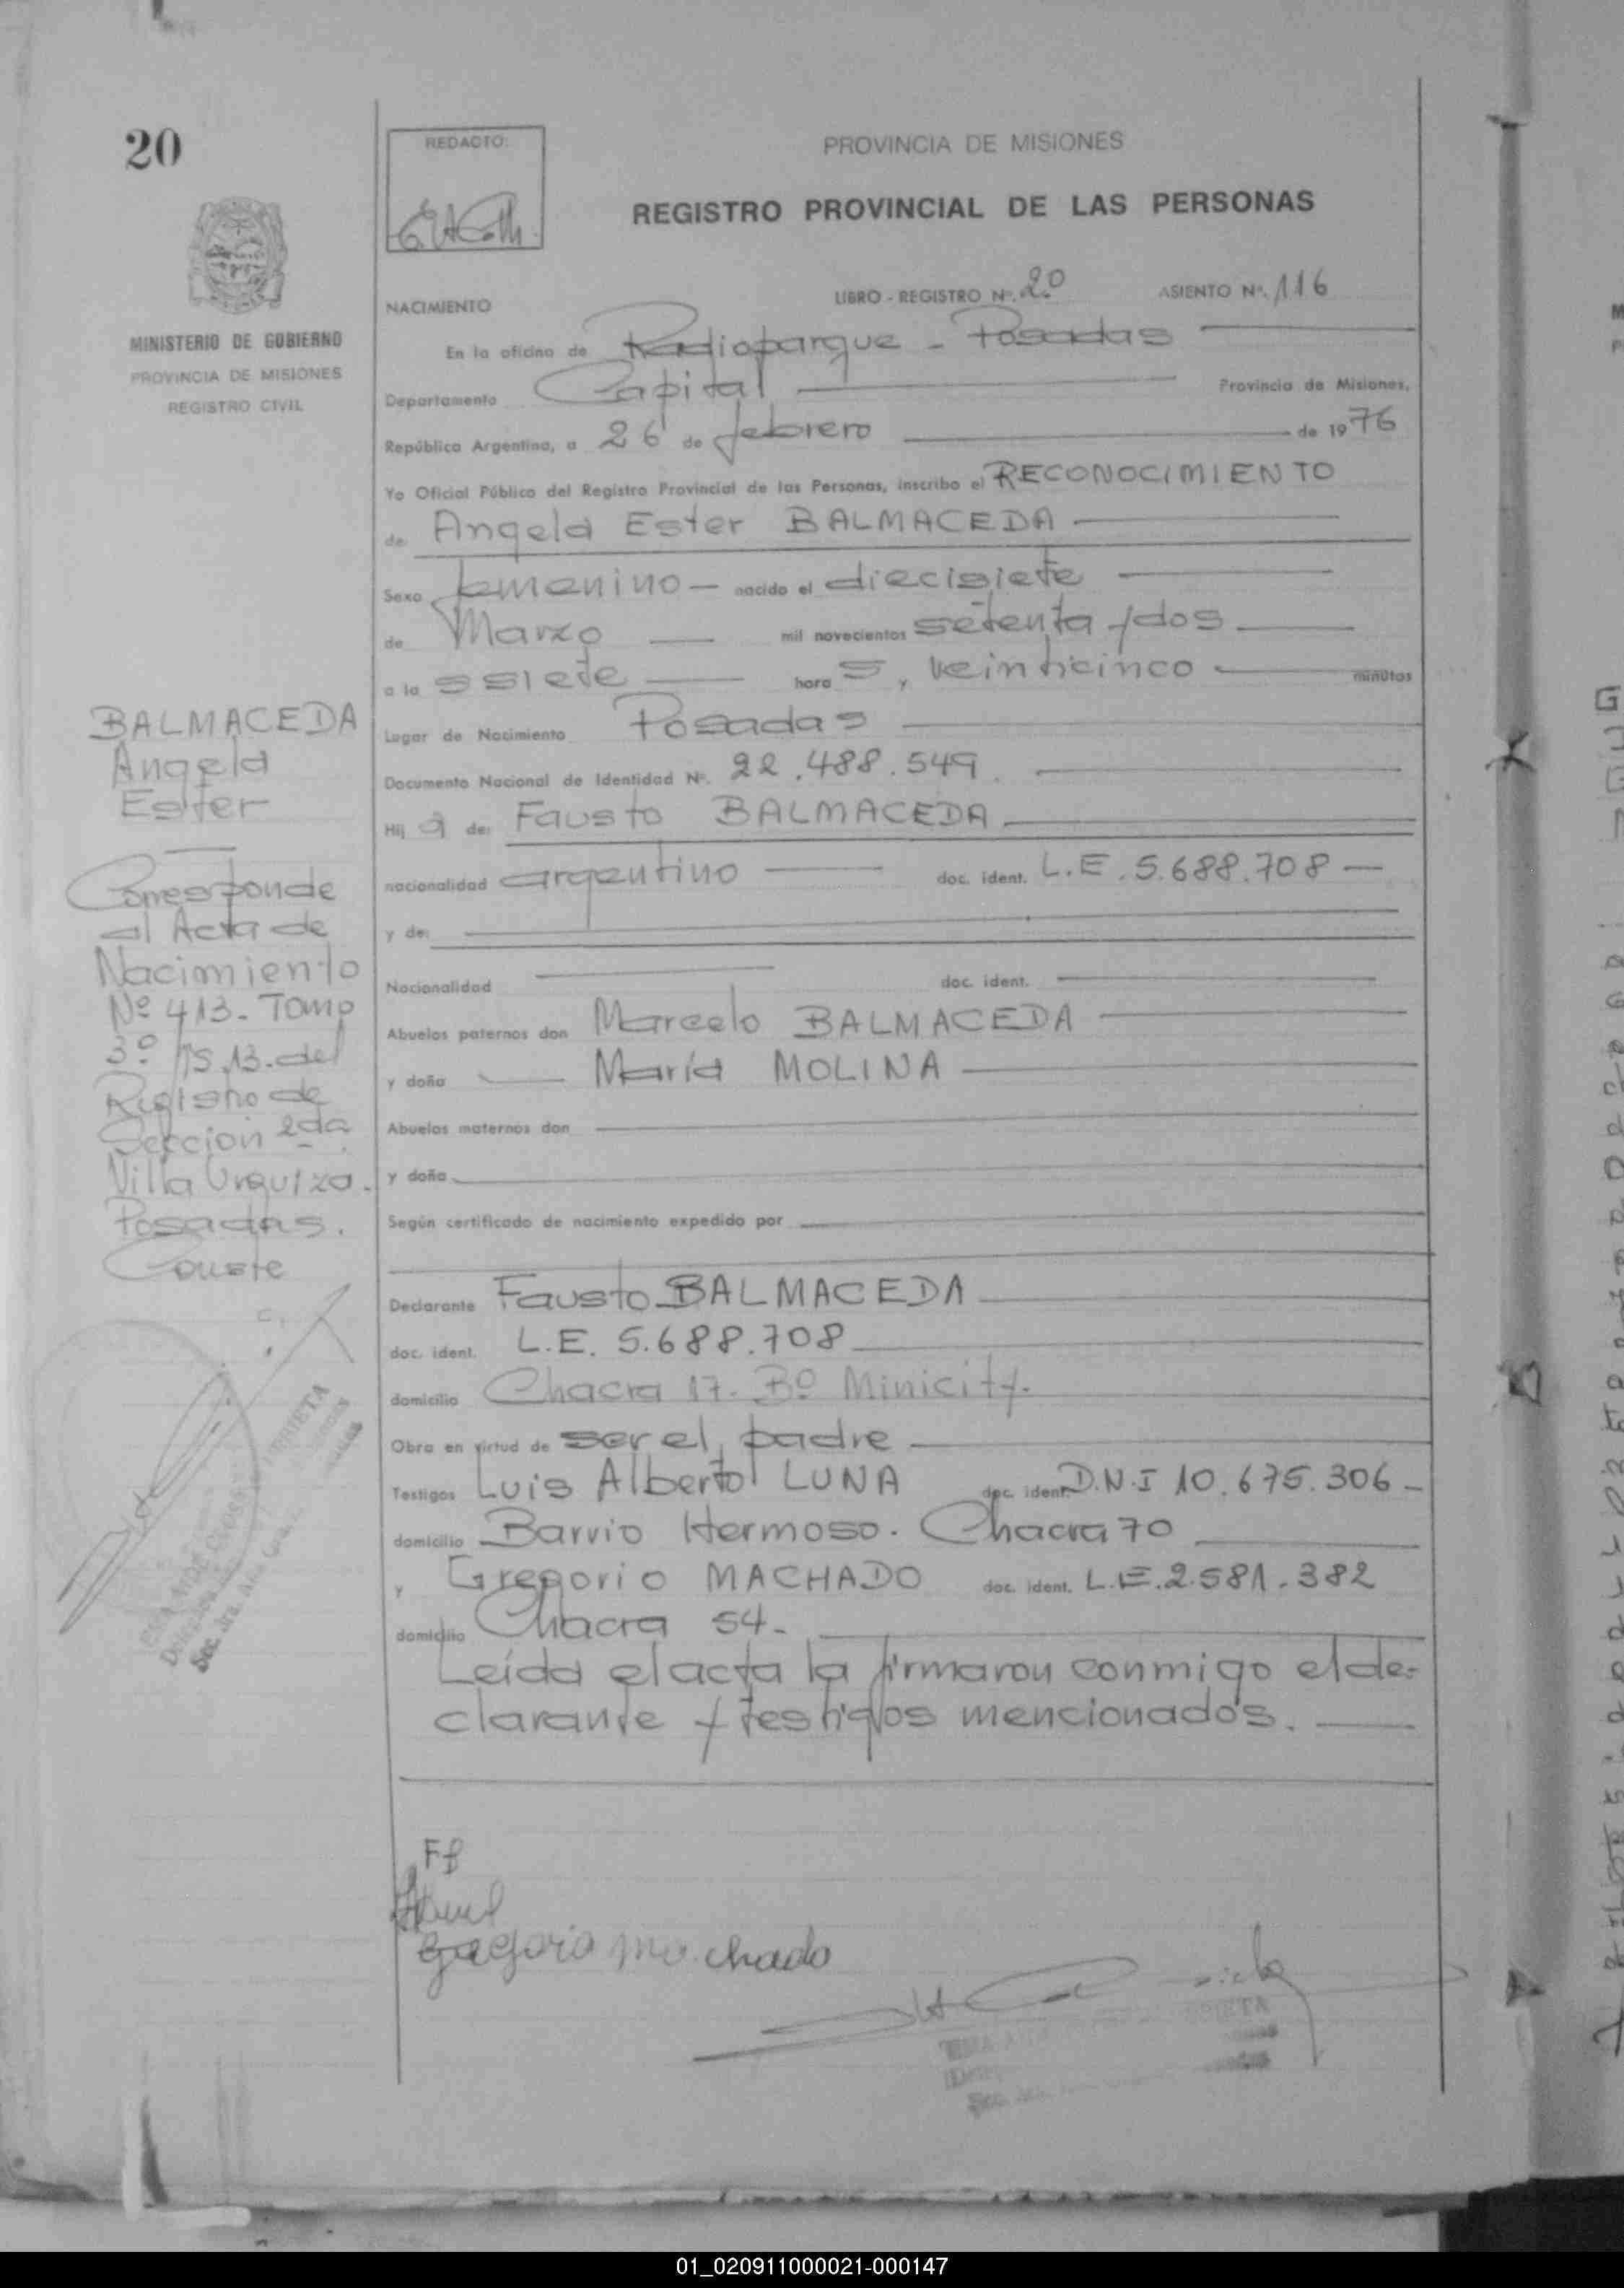 20
REDACTO:
PROVINCIA DE MISIONES
REGISTRO PROVINCIAL DE LAS PERSONAS
MINISTERIO DE GOBIERNO
PROVINCIA DE MISIONES
REGISTRO CIVIL
NACIMIENTO LIBRO - REGISTRO Nº. 2º ASIENTO Nº. 116
En la oficina de Radioparque - Posadas
Departamento Capital Provincia de Misiones,
República Argentina, a 26 de febrero de 1976
Yo Oficial Público del Registro Provincial de las Personas, inscribo el RECONOCIMIENTO
de Angela Ester BALMACEDA
Sexo femenino - nacido el diecisiete
de Marzo mil novecientos setenta y dos
a la s siete hora s y veinticinco minutos
Lugar de Nacimiento Posadas
Documento Nacional de Identidad Nº. 22.488.549.
Hij a de: Fausto BALMACEDA
nacionalidad argentino doc. ident. L.E. 5.688.708 -
y de:
Nacionalidad doc. ident.
Abuelos paternos don Marcelo BALMACEDA
y doña María MOLINA
Abuelos maternos don
y doña
Según certificado de nacimiento expedido por
Declarante Fausto BALMACEDA
doc. ident. L.E. 5.688.708
domicilio Chacra 17. Bº Minicity.
Obra en virtud de ser el padre
Testigos Luis Alberto LUNA doc. ident. D.N.I 10.675.306 -
domicilio Barrio Hermoso. Chacra 70
y Gregorio MACHADO doc. ident. L.E. 2.581.382
domicilio Chacra 54-
Leída el acta la firmaron conmigo el de-
clarante y testigos mencionados.
BALMACEDA
Angela
Ester
Corresponde
al Acta de
Nacimiento
Nº 413. Tomo
3º del
Registro de
Seccion 2da.
Villa Urquiza.
Posadas.
Conste
PRIETA
Gregorio Machado
01_020911000021-000147